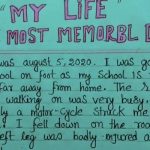 "MY LIFE"
MOST MEMORBL D
was august 5, 2020. I was go
ool on foot as my school is
far away from home. The
walking on was very busy.
ly a motor-cycle struck me
I fell down on the roo
eft leg was badly injured a